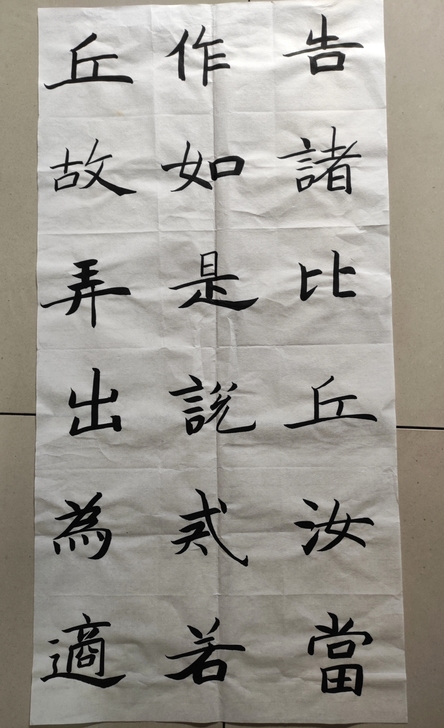 告諸比丘汝當
作如是說戒若
丘故弄出為適